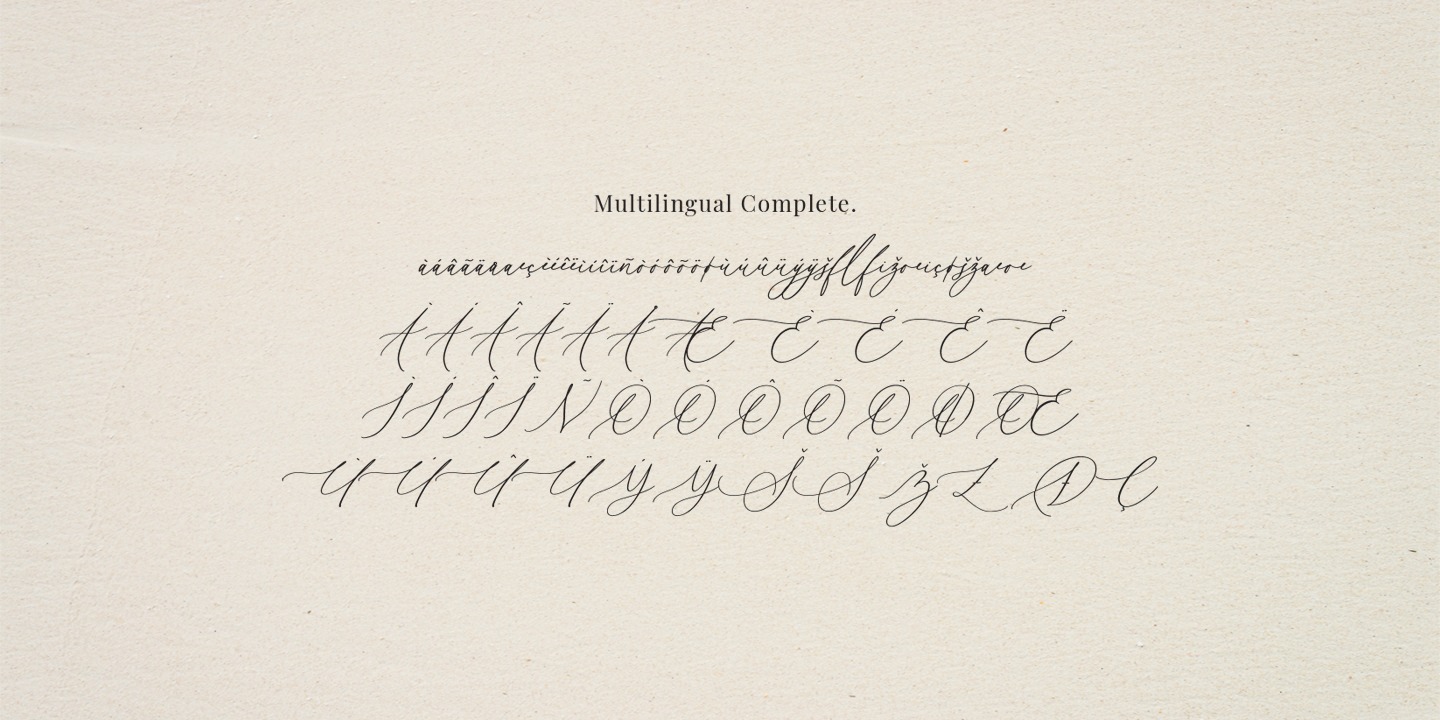 Multilingual Complete.
àáâãäåæçèéêëìíîïñòóôõöøùúûüýÿšflfižœıçđšžæœ
ÀÁÂÃÄÅÆÈÉÊË
ÌÍÎÏÑÒÓÔÕÖØŒ
ÙÚÛÜÝŸŠŠŽŁÐÇ